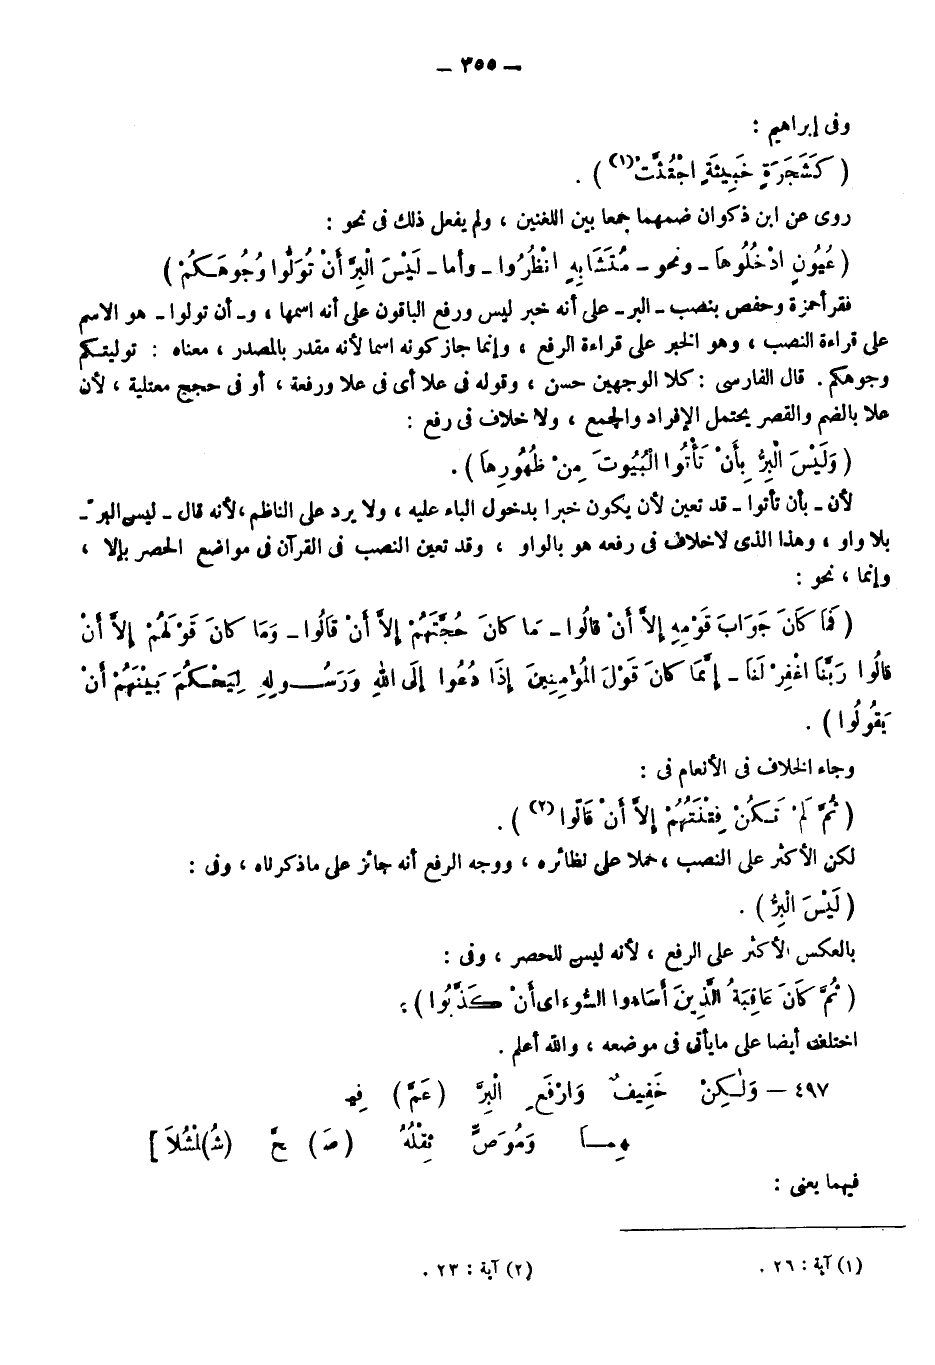 — ٣٥٥ —
وفى إبراهيم :
( كَشَجَرَةٍ خَبِيثَةٍ اجْتُثَّتْ(١) ) .
روى عن ابن ذكوان ضمهما جمعا بين اللغتين ، ولم يفعل ذلك فى نحو :
( عُيُونٍ ادْخُلُوهَا ـ ونحو ـ مُتَشَابِهٍ انْظُرُوا ـ وأما ـ لَيْسَ الْبِرَّ أَنْ تُوَلُّوا وُجُوهَكُمْ )
فقرأ حمزة وحفص بنصب ـ البر ـ على أنه خبر ليس ورفع الباقون على أنه اسمها ، و ـ أن تولوا ـ هو الاسم
على قراءة النصب ، وهو الخبر على قراءة الرفع ، وإنما جاز كونه اسما لأنه مقدر بالمصدر ، معناه : توليتكم
وجوهكم . قال الفارسى : كلا الوجهين حسن ، وقوله فى علا أى فى علا ورفعة ، أو فى حجج معتلية ، لأن
علا بالضم والقصر يحتمل الإفراد والجمع ، ولا خلاف فى رفع :
( وَلَيْسَ الْبِرُّ بِأَنْ تَأْتُوا الْبُيُوتَ مِنْ ظُهُورِهَا ) .
لأن ـ بأن تأتوا ـ قد تعين لأن يكون خبرا بدخول الباء عليه ، ولا يرد على الناظم ، لأنه قال ـ ليس البر ـ
بلا واو ، وهذا الذى لاخلاف فى رفعه هو بالواو ، وقد تعين النصب فى القرآن فى مواضع الحصر بإلا ،
وإنما ، نحو :
( فَمَا كَانَ جَوَابَ قَوْمِهِ إِلاَّ أَنْ قالُوا ـ مَا كانَ حُجَّتَهُمْ إِلاَّ أَنْ قَالُوا ـ وَمَا كانَ قَوْلَهُمْ إِلاَّ أَنْ
قالُوا رَبَّنَا اغْفِرْ لَنَا ـ إِنَّمَا كانَ قَوْلَ الْمُؤْمِنِينَ إِذَا دُعُوا إِلَى اللهِ وَرَسُولِهِ لِيَحْكُمَ بَيْنَهُمْ أَنْ
يَقُولُوا ) .
وجاء الخلاف فى الأنعام فى :
( ثُمَّ لَمْ تَكُنْ فِتْنَتَهُمْ إِلاَّ أَنْ قَالُوا (٢) ) .
لكن الأكثر على النصب ، حملا على نظائره ، ووجه الرفع أنه جائز على ماذكرناه ، وفى :
( لَيْسَ الْبِرُّ ) .
بالعكس الأكثر على الرفع ، لأنه ليس للحصر ، وفى :
( ثُمَّ كَانَ عَاقِبَةُ الَّذِينَ أَسَاءُوا السُّوءَاى أَنْ كَذَّبُوا ) :
اختلف أيضا على مايأتى فى موضعه ، والله أعلم .
٤٩٧ — وَلَكِنْ خَفِيفٌ وَارْفَعِ الْبِرَّ (عَمَّ) فِيـ
ـهِمَـا وَمُوَصٍّ ثِقْلُهُ (صَ) حَّ (شُ)لْشُلاَ ]
فيهما يعنى :
(١) آية : ٢٦ . (٢) آية : ٢٣ .